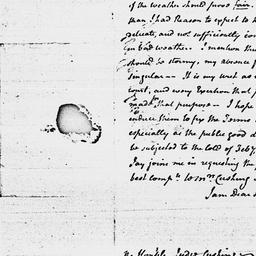 of the weather should prove fair.
than I had Reason to expect to h
delicate, and not sufficiently con
in bad weather. I mention th
should be stormy, my absence f
singular — It is my wish to
court, and every Exertion that
made that purpose — I hope
induce them to fix the Terms
especially as the public good d
be subjected to the cold of Feb
Jay joins me in requesting the
best compts. to Mrs. Cushing
I am Dear
Honble. Judge Cushing